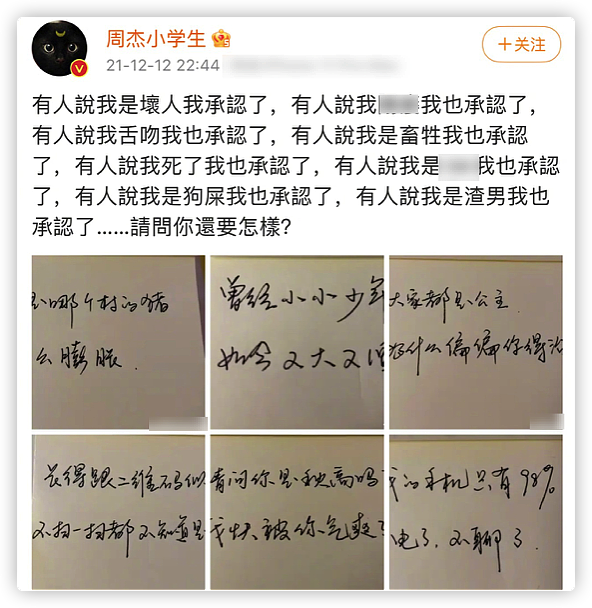 周杰小学生
21-12-12 22:44
+关注
有人說我是壞人我承認了，有人說我我也承認了，
有人說我舌吻我也承認了，有人說我是畜牲我也承認
了，有人說我死了我也承認了，有人說我是我也承認
了，有人說我是狗屎我也承認了，有人說我是渣男我也
承認了......請問你還要怎樣?
是哪个村的猪
么膨胀.
曾经小小少年
如今又大又
大家都是公主.
为什么偏偏你得治
长得跟二维码似
不扫一扫都不知道是
请问你是秋高吗
我快被你气爽了
我的手机只有98%
电了.不聊了.